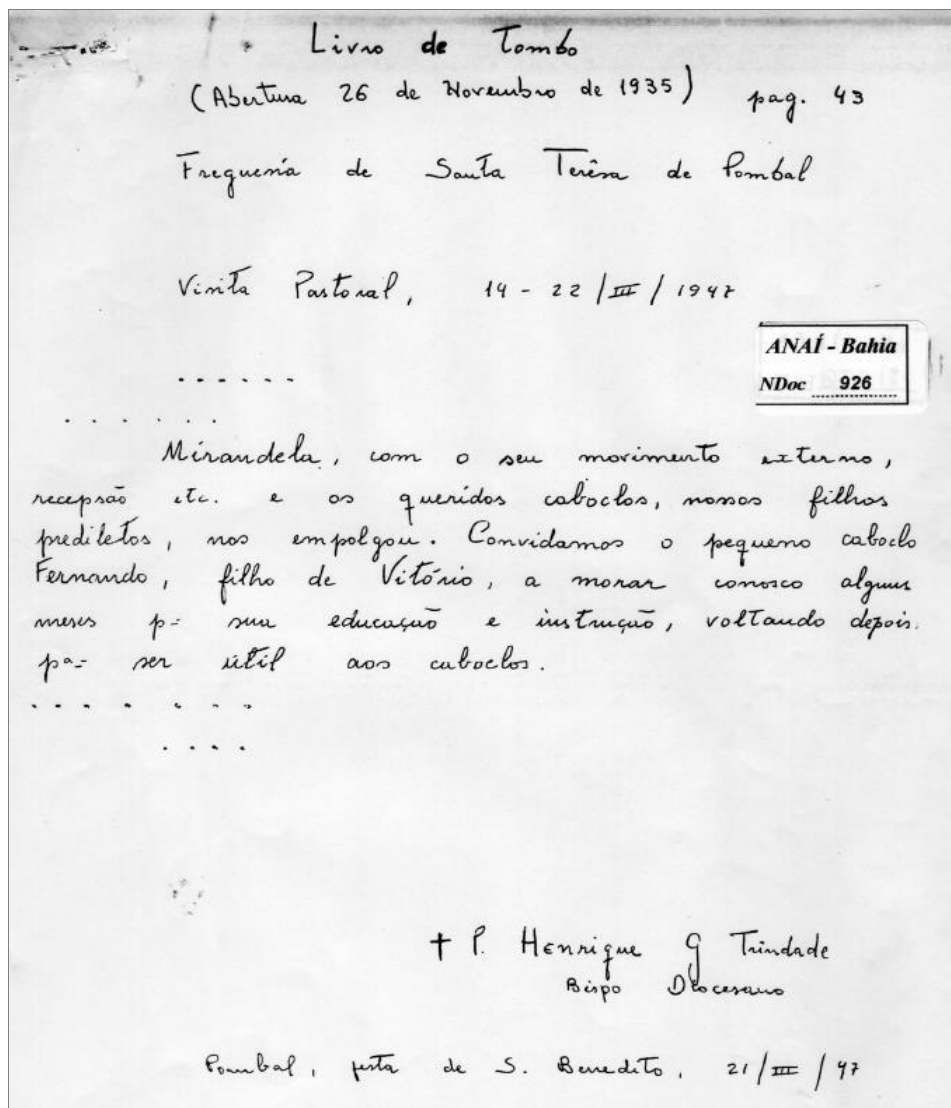 Livro de Tombo
(Abertura 26 de Novembro de 1935) pag. 43
Freguesia de Santa Terêsa de Pombal
Visita Pastoral, 14 - 22 / III / 1947
ANAÍ - Bahia
NDoc 926
. . . . . .
. . . . . .
Mirandela, com o seu movimento externo,
recepsão etc. e os queridos caboclos, nossos filhos
prediletos, nos empolgou. Convidamos o pequeno caboclo
Fernando, filho de Vitório, a morar conosco alguns
meses p= sua educação e instrução, voltando depois.
pa= ser útil aos caboclos.
. . . . . . .
. . . .
† P. Henrique G Trindade
Bispo Diocesano
Pombal, festa de S. Benedito, 21 / III / 47